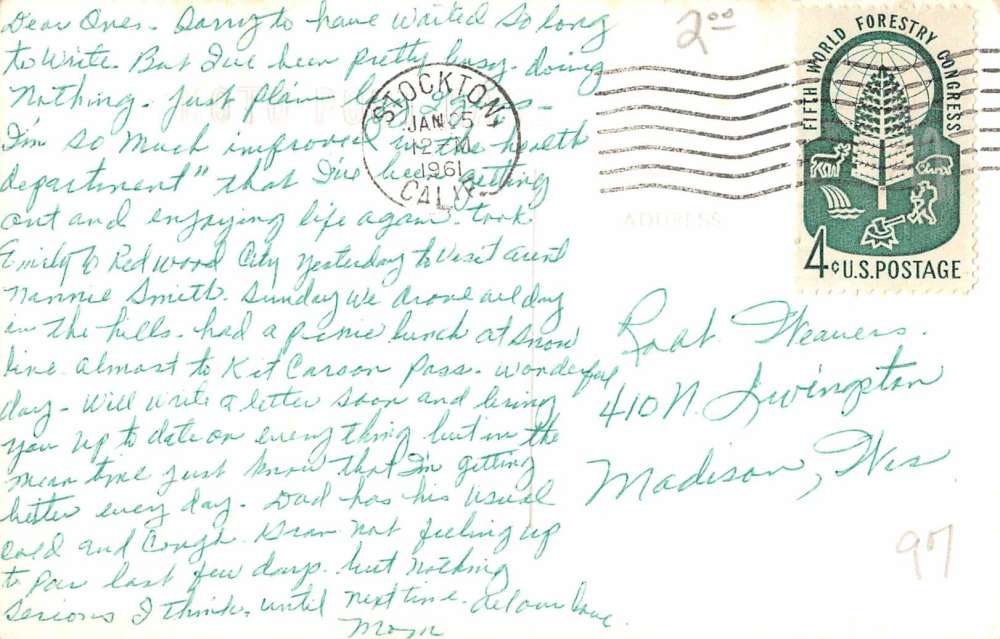 Dear Ones - Sorry to have waited so long
to write. But I've been pretty busy - doing
nothing. Just plain
I'm so much improved in the health
department" that I've been getting
out and enjoying life again - took
Emily to Redwood City yesterday to visit aunt
Nannie Smith. Sunday we drove all day
in the hills - had a picnic lunch at snow
line almost to Kit Carson Pass. Wonderful
day - Will write a letter soon and bring
you up to date on everything but in the
mean time just know that I'm getting
better every day. Dad has his usual
cold and cough. Gran not feeling up
to par last few days. but nothing
serious I think. until next time. all our love
Mom
2⁰⁰
STOCKTON,
JAN 25
12 M
1961
CALIF.
FIFTH WORLD FORESTRY CONGRESS
4¢ U.S. POSTAGE
ADDRESS
Robt. Weavers.
410 N. Livingston
Madison, Wis
97